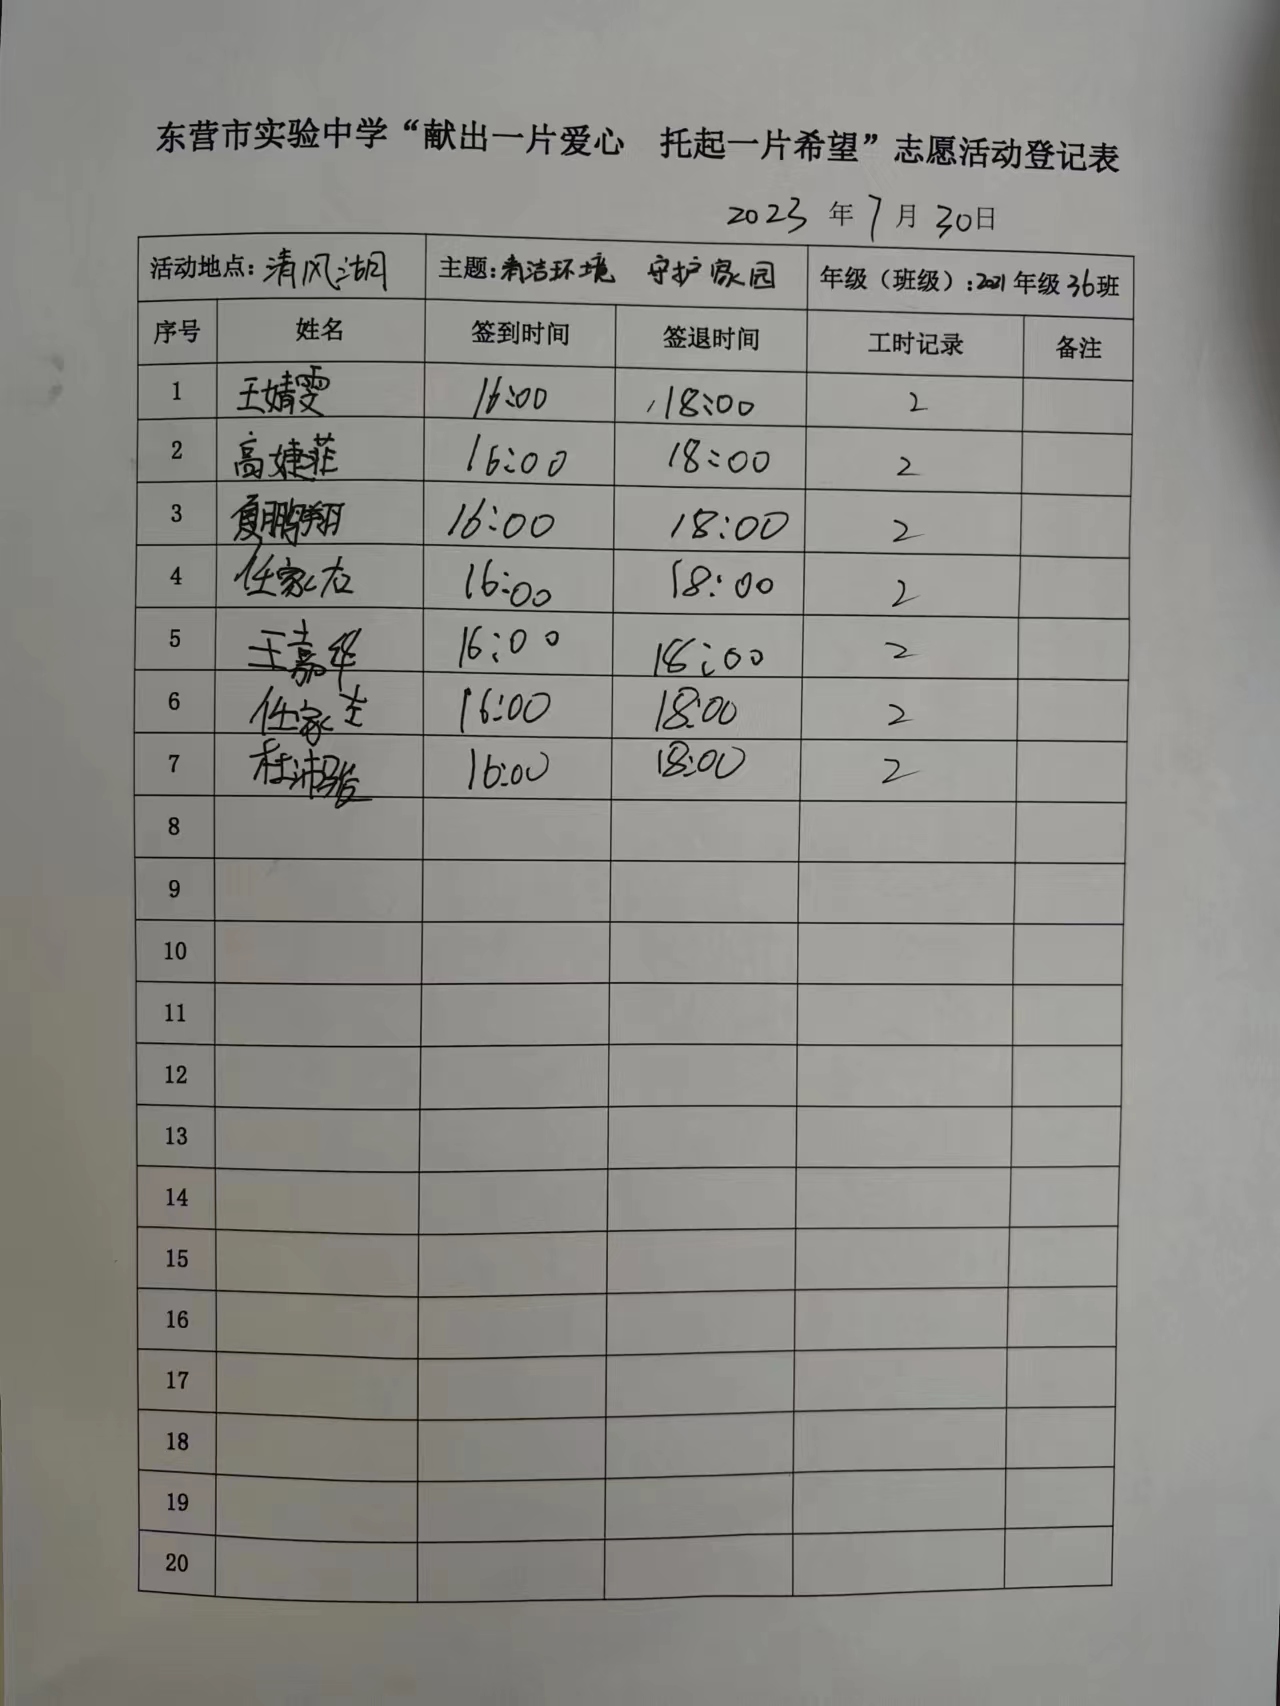 东营市实验中学“献出一片爱心 托起一片希望”志愿活动登记表
2023 年 7 月 30 日
活动地点：清风湖 主题：清洁环境 守护家园 年级（班级）：2021 年级 36 班
序号 姓名 签到时间 签退时间 工时记录 备注
1 王婧雯 16:00 18:00 2
2 高婕菲 16:00 18:00 2
3 夏鹏翔 16:00 18:00 2
4 任家右 16:00 18:00 2
5 王嘉华 16:00 18:00 2
6 任家 16:00 18:00 2
7 杜沛骏 16:00 18:00 2
8
9
10
11
12
13
14
15
16
17
18
19
20